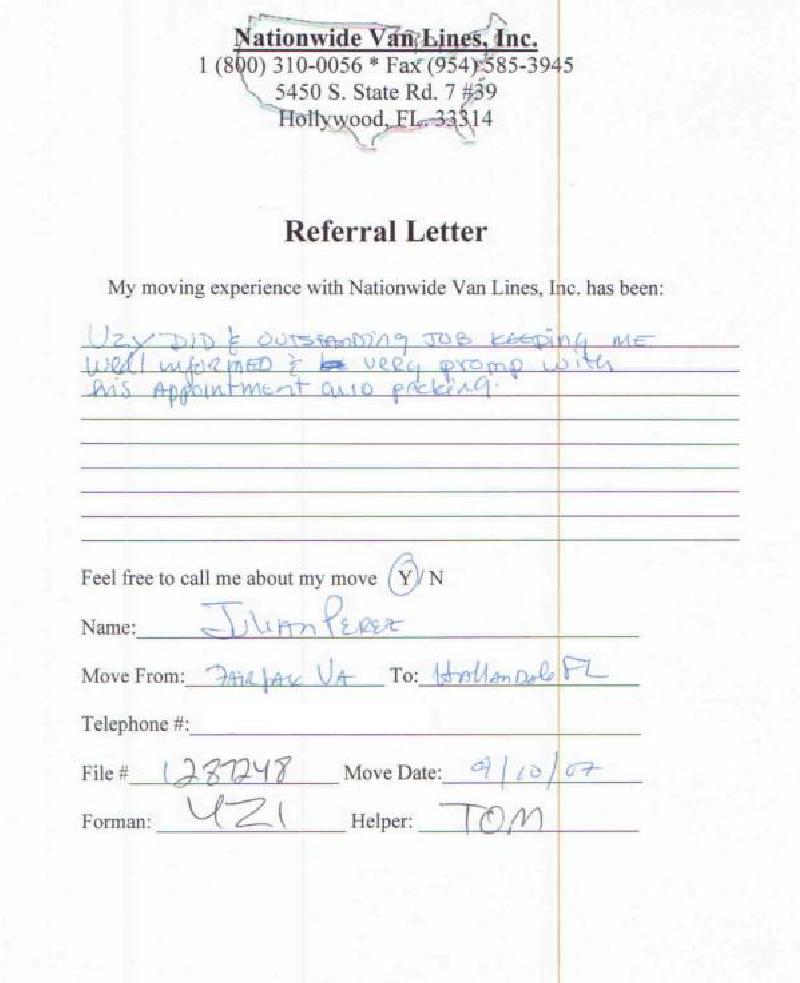 Nationwide Van Lines, Inc.
1 (800) 310-0056 * Fax (954) 585-3945
5450 S. State Rd. 7 #39
Hollywood, FL. 33314
Referral Letter
My moving experience with Nationwide Van Lines, Inc. has been:
UZY DID & OUTSTANDING JOB KEEPING ME
Well informED & very promp with
his Appointment packing.
Feel free to call me about my move Y / N
Name: Julian Perez
Move From: FAIRFAX VA To: Hallandale FL
Telephone #:
File # 1287248 Move Date: 9/10/07
Forman: UZI Helper: TOM